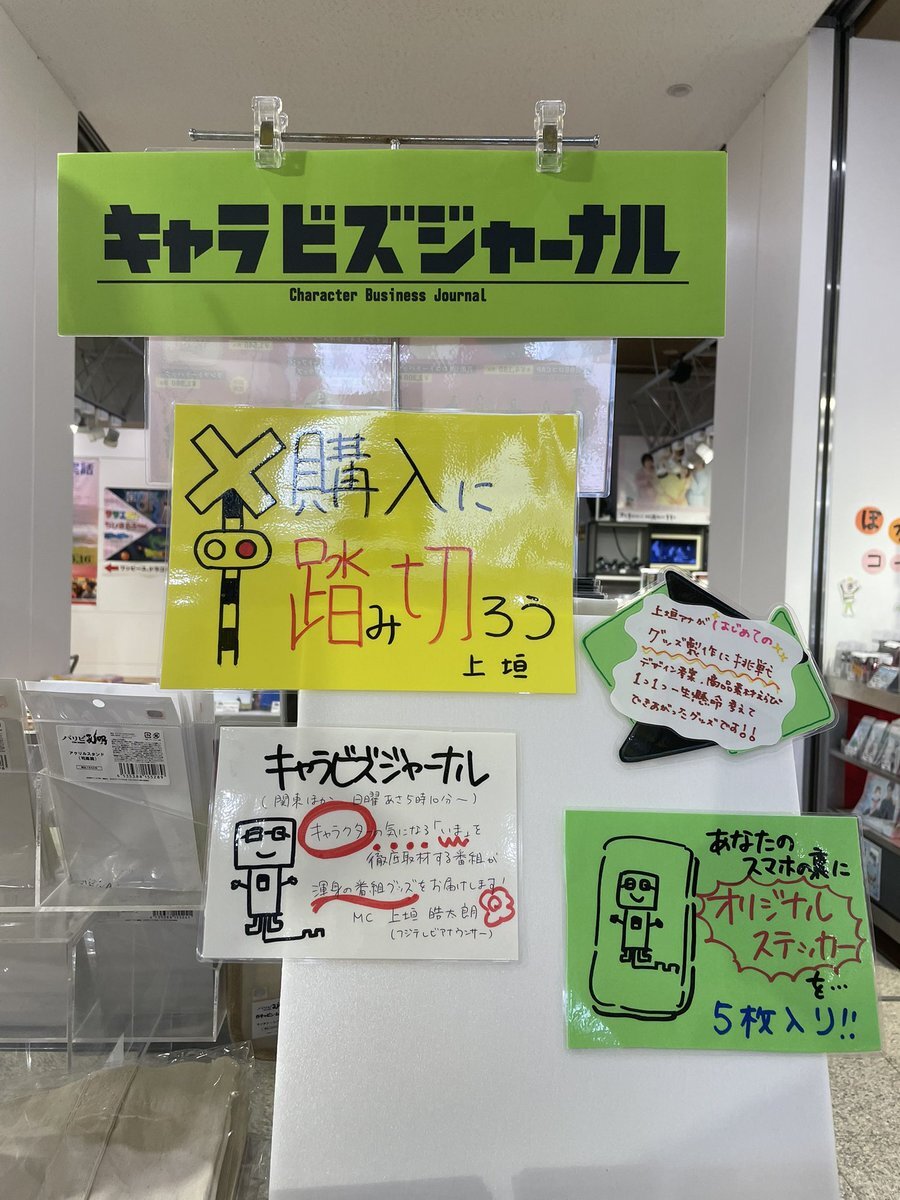 キャラビズジャーナル
Character Business Journal
購入に
踏み切ろう
上垣
上垣アナがはじめての
グッズ製作に挑戦
デザイン考案、商品素材えらび
1つ1つ一生懸命考えて
できあがったグッズです!!
キャラビズジャーナル
(関東ほか 日曜あさ5時10分~)
キャラクターの気になる「いま」を
徹底取材する番組が
渾身の番組グッズをお届けします!
MC 上垣 皓太朗
(フジテレビアナウンサー)
あなたの
スマホの裏に
オリジナル
ステッカー
を…
5枚入り!!
パリピ孔明
アクリルスタンド